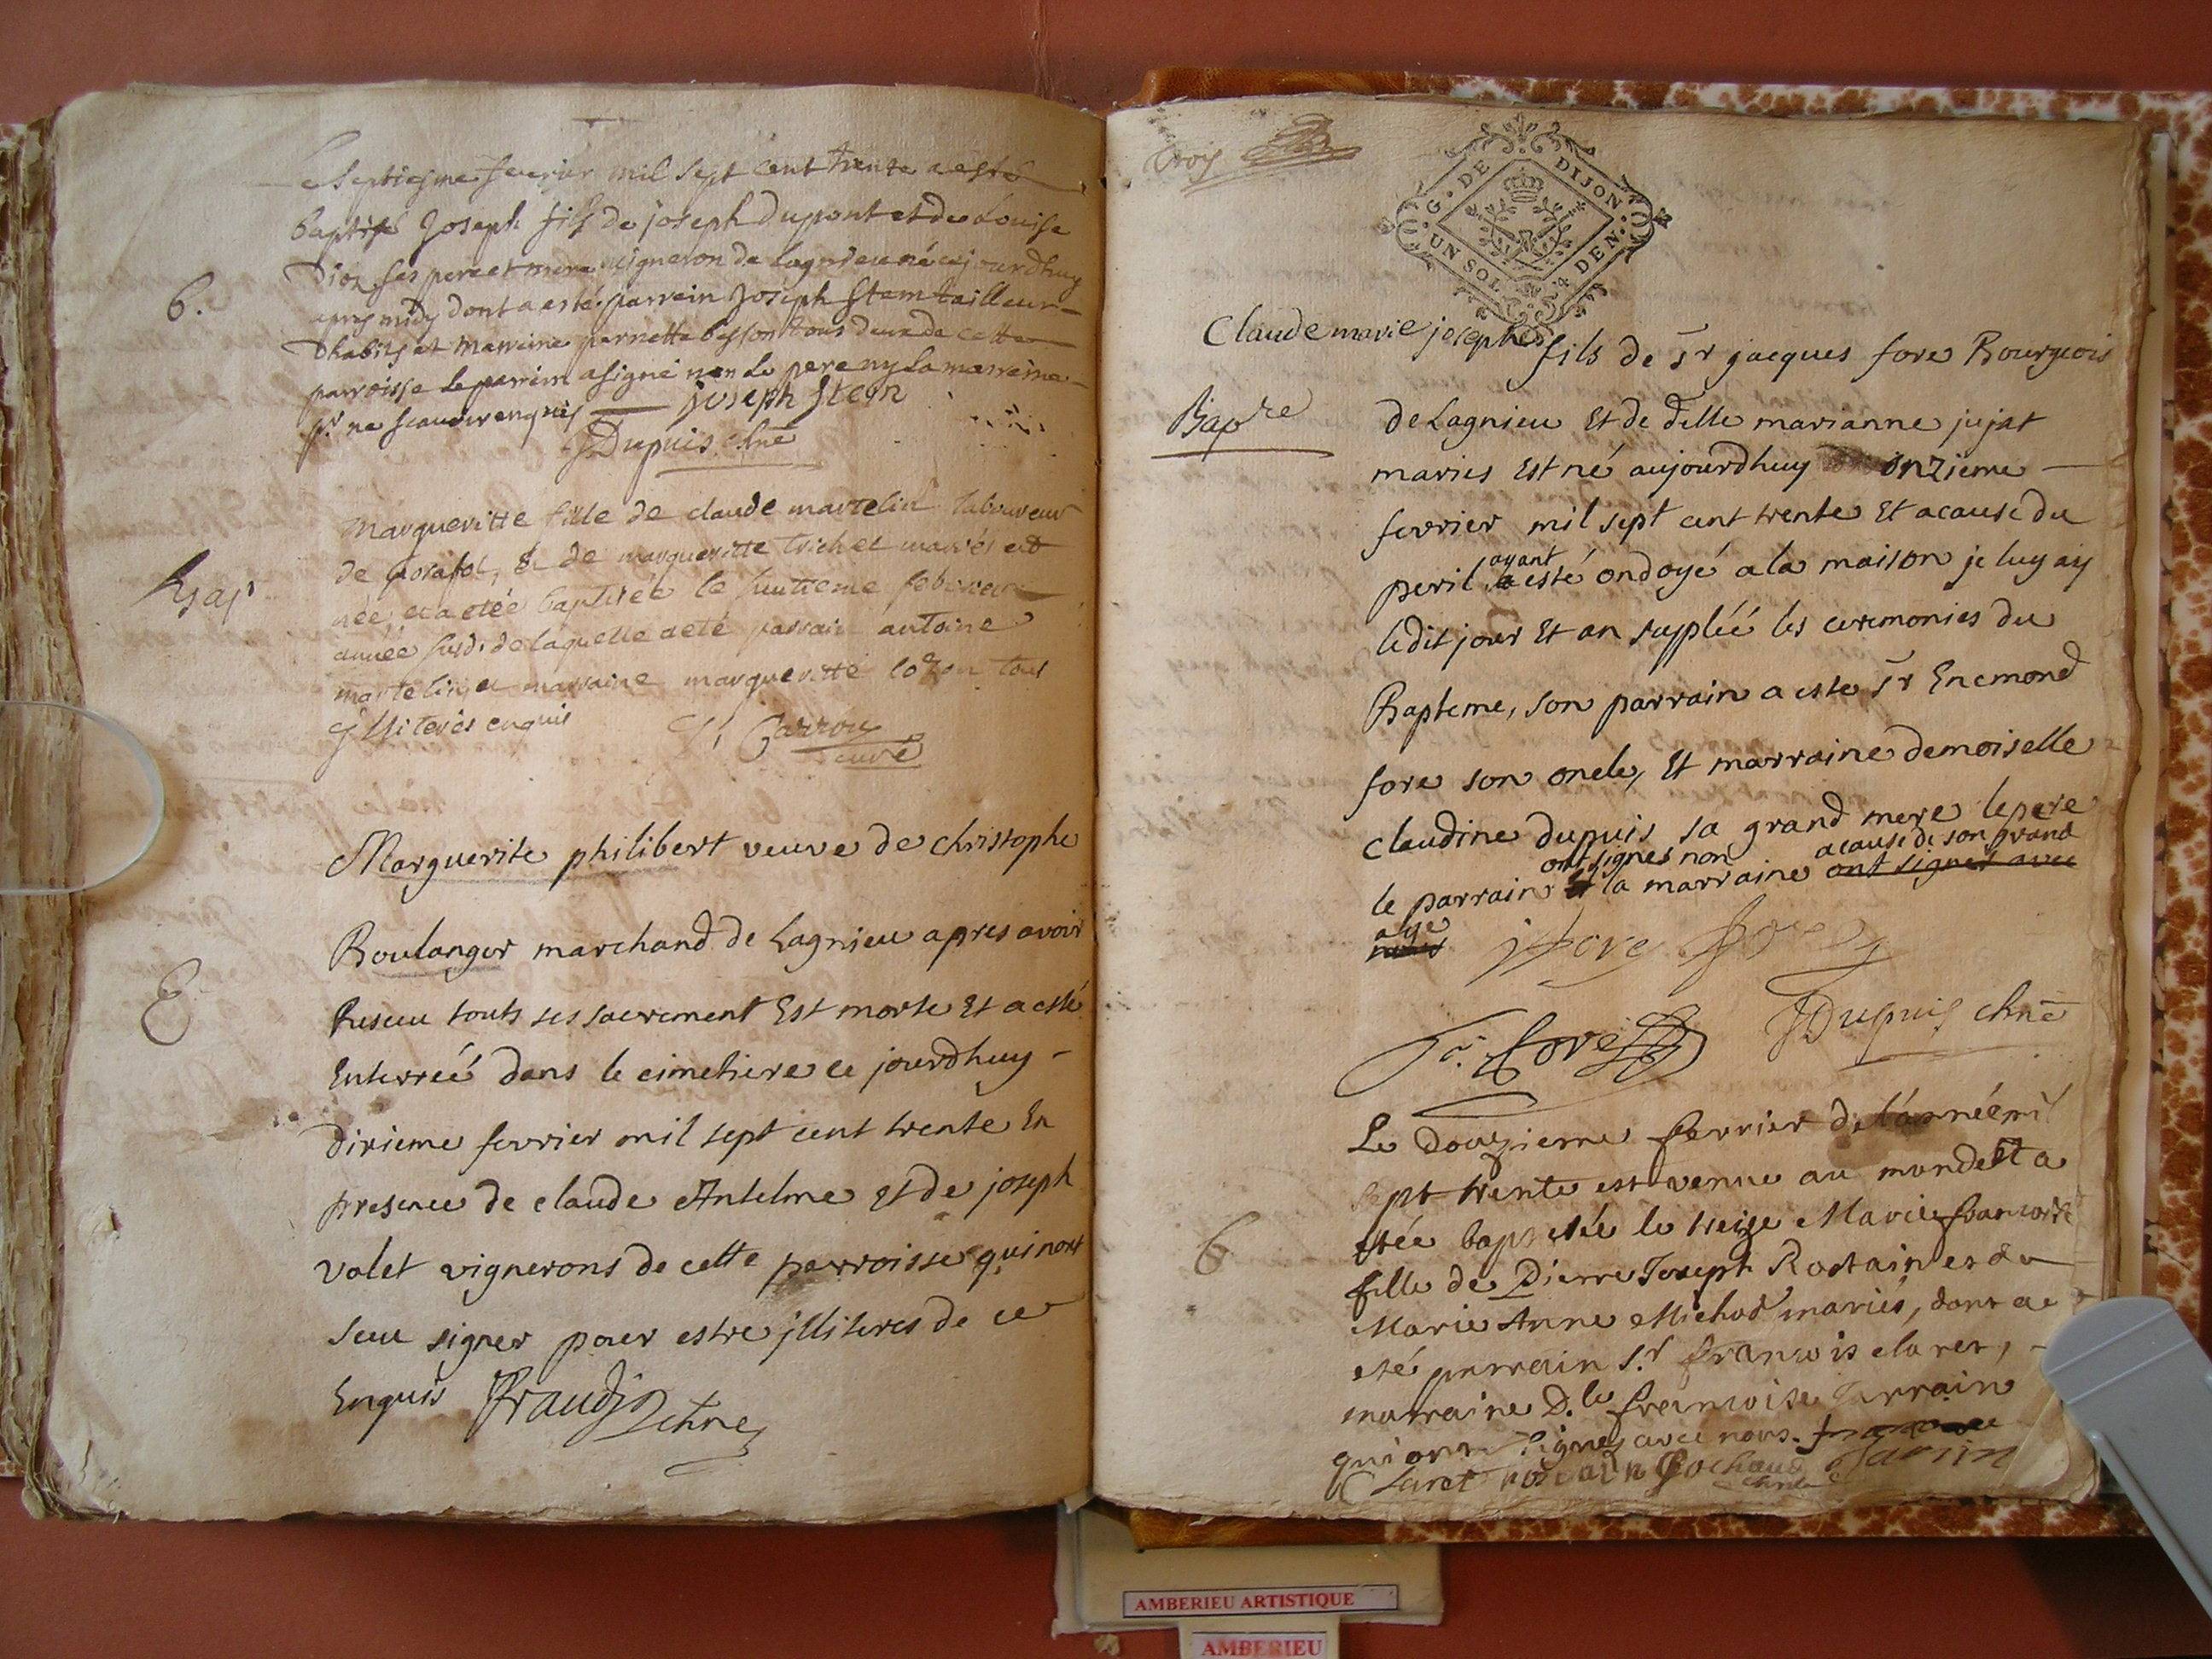 Le septiesme fevrier mil sept cent trente a esté
baptisé Joseph fils de joseph Dupont et de Louise
Dioz ses pere et mere vigneron de Lagnieu né cejourdhuy
6.
apres midy dont a esté parrein Joseph Stem tailleur
Dhabits et marreine pernette besson tous deux de cette
parroisse le parrein a signé non le pere ny la marreine
pr ne scavoir enquis joseph Stein
JDupuis chne
Margueritte fille de claude martelin laboureur
de posafol, & de margueritte trichet mariés est
Bap
née et a etée baptisée le huitieme febvrier
année susd. de laquelle a eté parrain antoine
martelin et marraine margueritte cozon tous
illiterés enquis Carron
curé
Marguerite philibert veuve de christophe
Boulanger marchand de Lagnieu apres avoir
E
Reseu touts ses sacrement Est morte Et a esté
Enterreé dans le cimetiere ce jourdhuy -
dixieme fevrier mil sept cent trente En
presence de claude Antelme et de joseph
valet vignerons de cette parroisse qui nont
sceu signer pour estre illiteres de ce
Enquis
chne
trois
G. DE DIJON
UN SOL DEN.
Claude marie joseph fils de Sr jacques fore Bourgeois
Bapme
de Lagnieu Et de delle marianne jujat
maries Est né aujourdhuy onzieme
fevrier mil sept cent trente Et a cause du
peril ayant esté ondoyé a la maison je luy ay
ledit jour Et an suppléé les ceremonies du
Bapteme, son parrain a este Sr Enemond
fore son oncle, Et marraine demoiselle
claudine dupuis sa grand mere le pere
ont signes non a cause de son grand
le parrain Et la marraine ont signes avec
age
nous jfore fore
fore JDupuis chne
Le douzieme fevrier de l'année mil
sept trente est venue au monde Et a
etée baptisée le treize Marie francoise
6
fille de Pierre Joseph Rostain et de
Marie Anne Michod mariés, dont a
eté parrain S.r francois claret,
marraine D.le francoise Jarrain
qui ont signés avec nous.
Claret rostain Cochaud Jarrin